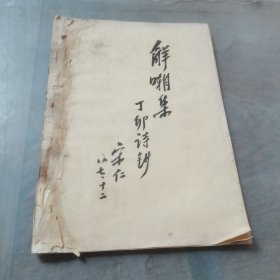 解嘲集
丁卯诗钞
宋仁
八七·十二